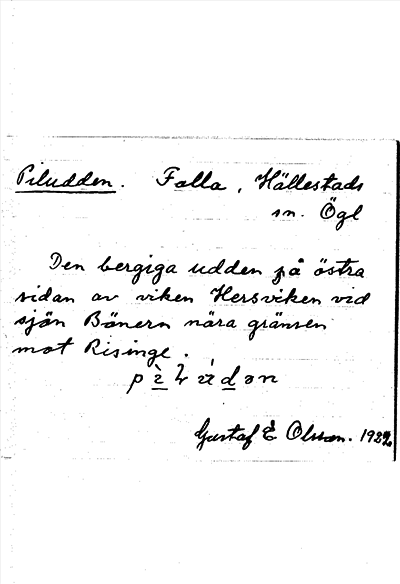 Piludden. Falla, Hällestads
sn. Ögl
Den bergiga udden på östra
sidan av viken Hersviken vid
sjön Bönern nära gränsen
mot Risinge.
Gustaf E Olsson. 1932